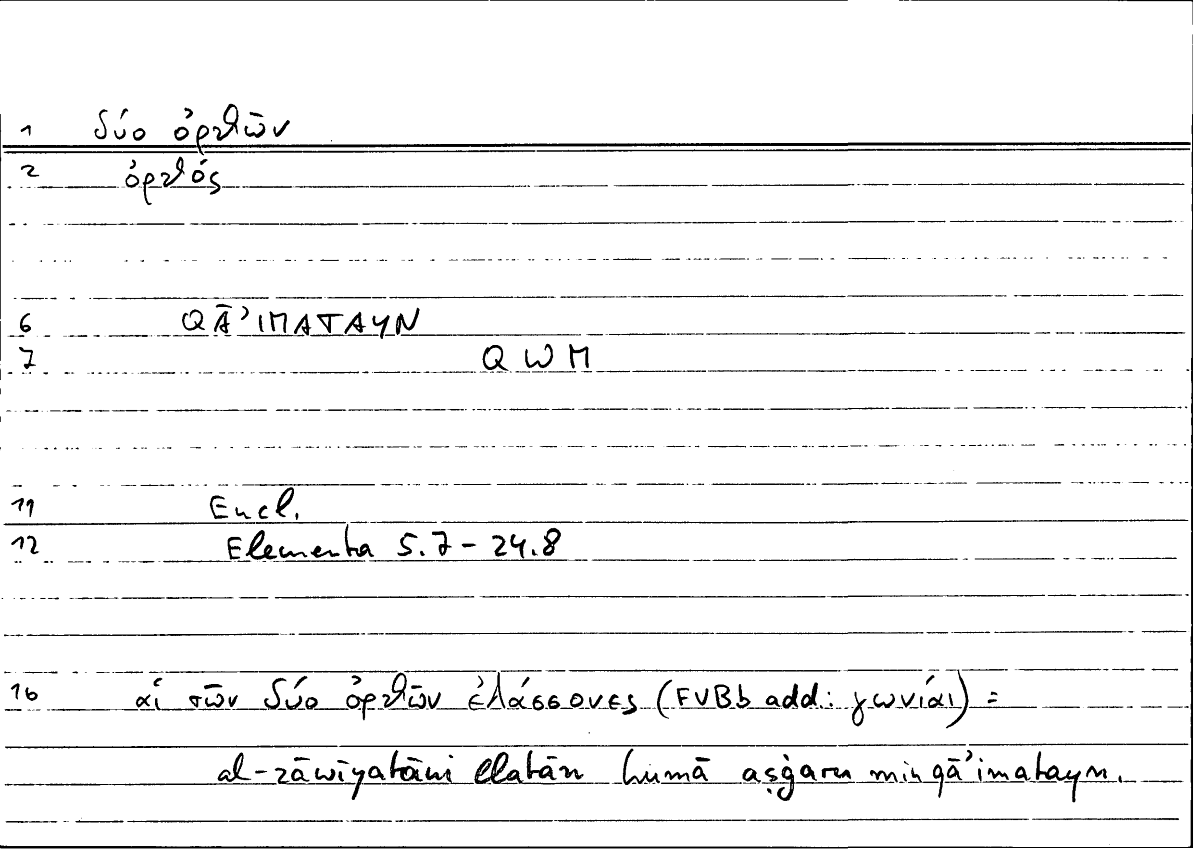 1 δύο ὀρθῶν
2 ὀρθός
6 QĀʾIMATAYN
7 QWM
11 Eucl.
12 Elementa 5.7 - 24.8
16 αἱ τῶν δύο ὀρθῶν ἐλάσσονες (FVBb add.: γωνίαι) =
al-zāwiyatāni llatān humā aṣġaru min qāʾimatayn.